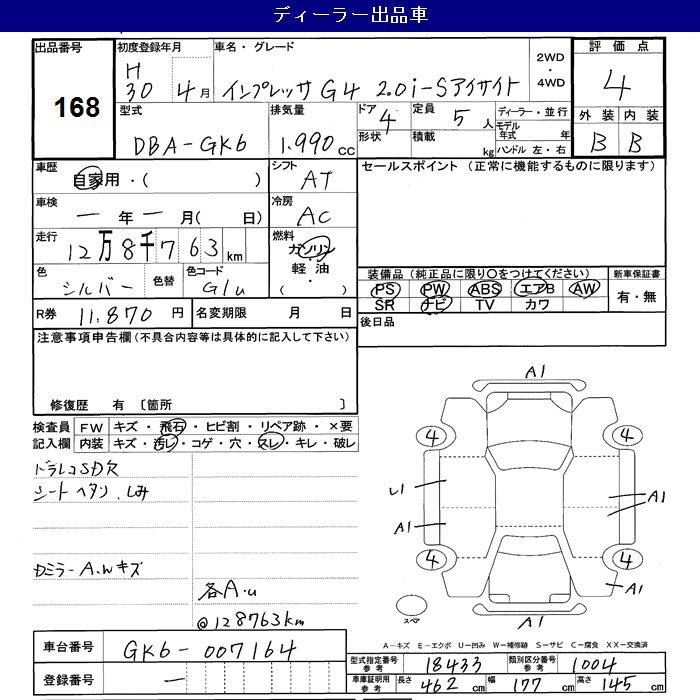 ディーラー出品車
出品番号 168
初度登録年月 H30年 4月
車名・グレード インプレッサ G4 2.0i-Sアイサイト
2WD・4WD
評価点 4
外装 B 内装 B
型式 DBA-GK6
排気量 1.990cc
ドア 4 形状
定員 5人 積載 kg
ディーラー・並行
モデル年式 年
ハンドル 左・右
車歴 自家用・( )
シフト AT
セールスポイント (正常に機能するものに限ります)
車検 一年一月( 日)
冷房 AC
走行 12万8千763km
燃料 ガソリン・軽油・( )
色 シルバー 色替 色コード G1u
装備品(純正品に限り○をつけてください)
PS PW ABS エアB AW
SR ナビ TV カワ
新車保証書 有・無
R券 11.870円 名変期限 月 日
後日品
注意事項申告欄(不具合内容等は具体的に記入して下さい)
修復歴 有 〔箇所 〕
検査員記入欄
FW キズ・飛石・ヒビ割・リペア跡・×要
内装 キズ・汚レ・コゲ・穴・スレ・キレ・破レ
ドラレコSD欠
シート ヘタリ、しみ
Dミラー A.wキズ
各A.u
@128763km
A1
4 4
U1
A1
A1
4 4
A1
スペア
A1
A-キズ E-エクボ U-凹み W-補修跡 S-サビ C-腐食 XX-交換済
車台番号 GK6-007164
登録番号 一
型式指定番号 参考 18433 類別区分番号 参考 1004
車庫証明用 参考 長さ 462cm 幅 177cm 高さ 145cm